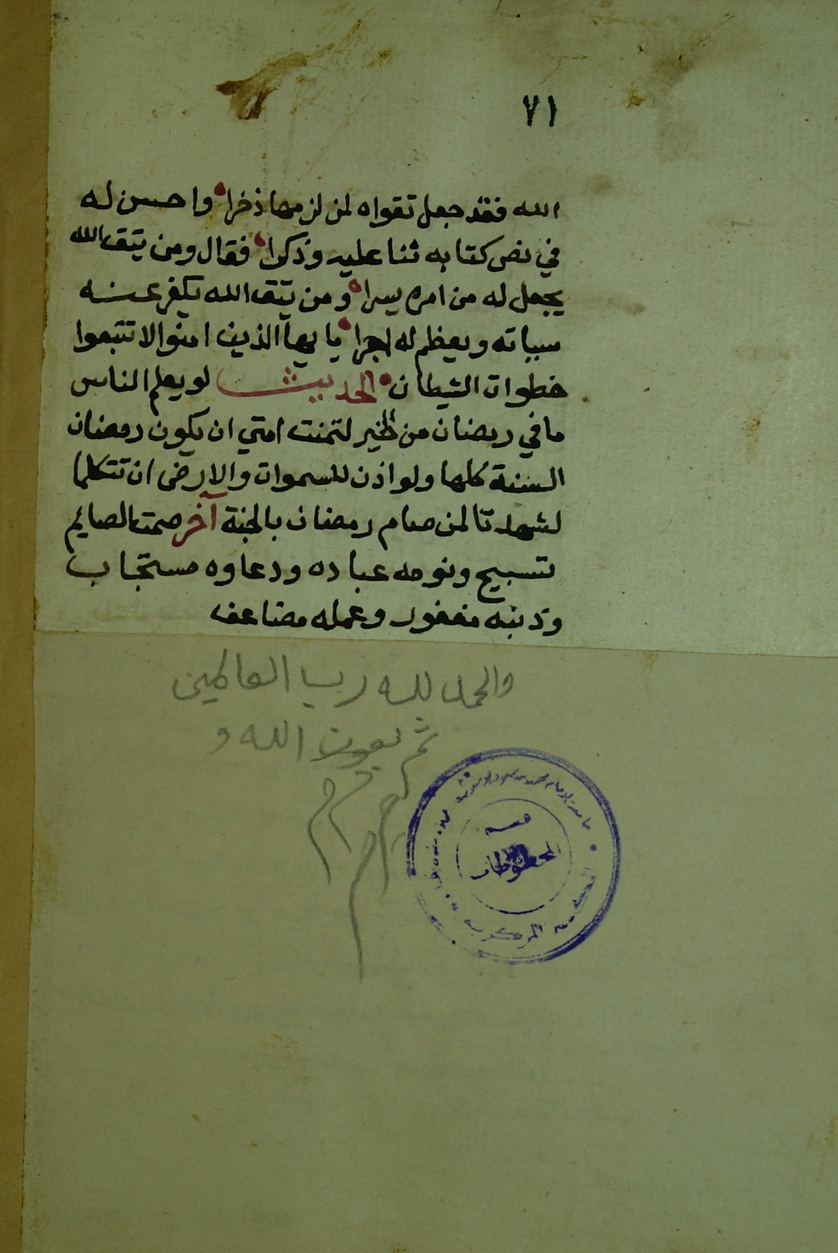 ٧١
الله فقد جعل تقواه لمن لزمها ذخرا واحسن له
في نص كتابه ثنا عليه وذكرا فقال ومن يتق الله
يجعل له من امره يسرا ومن يتق الله يكفر عنه
سياته ويعظم له اجرا يا يها الذين امنوا لا تتبعوا
خطوات الشيطان الحديث لو يعلم الناس
ما في رمضان من الخير لتمنت امتي ان يكون رمضان
السنة كلها ولو اذن للسموات والارض ان تتكلما
لشهدتا لمن صام رمضان بالجنة آخر صمت الصايم
تسبيح ونومه عباده ودعاوه مستجاب
وذنبه مغفور وعمله مضاعف
والحمد لله رب العالمين
تم بعون الله و
قسم
المخطوطات
المركزية